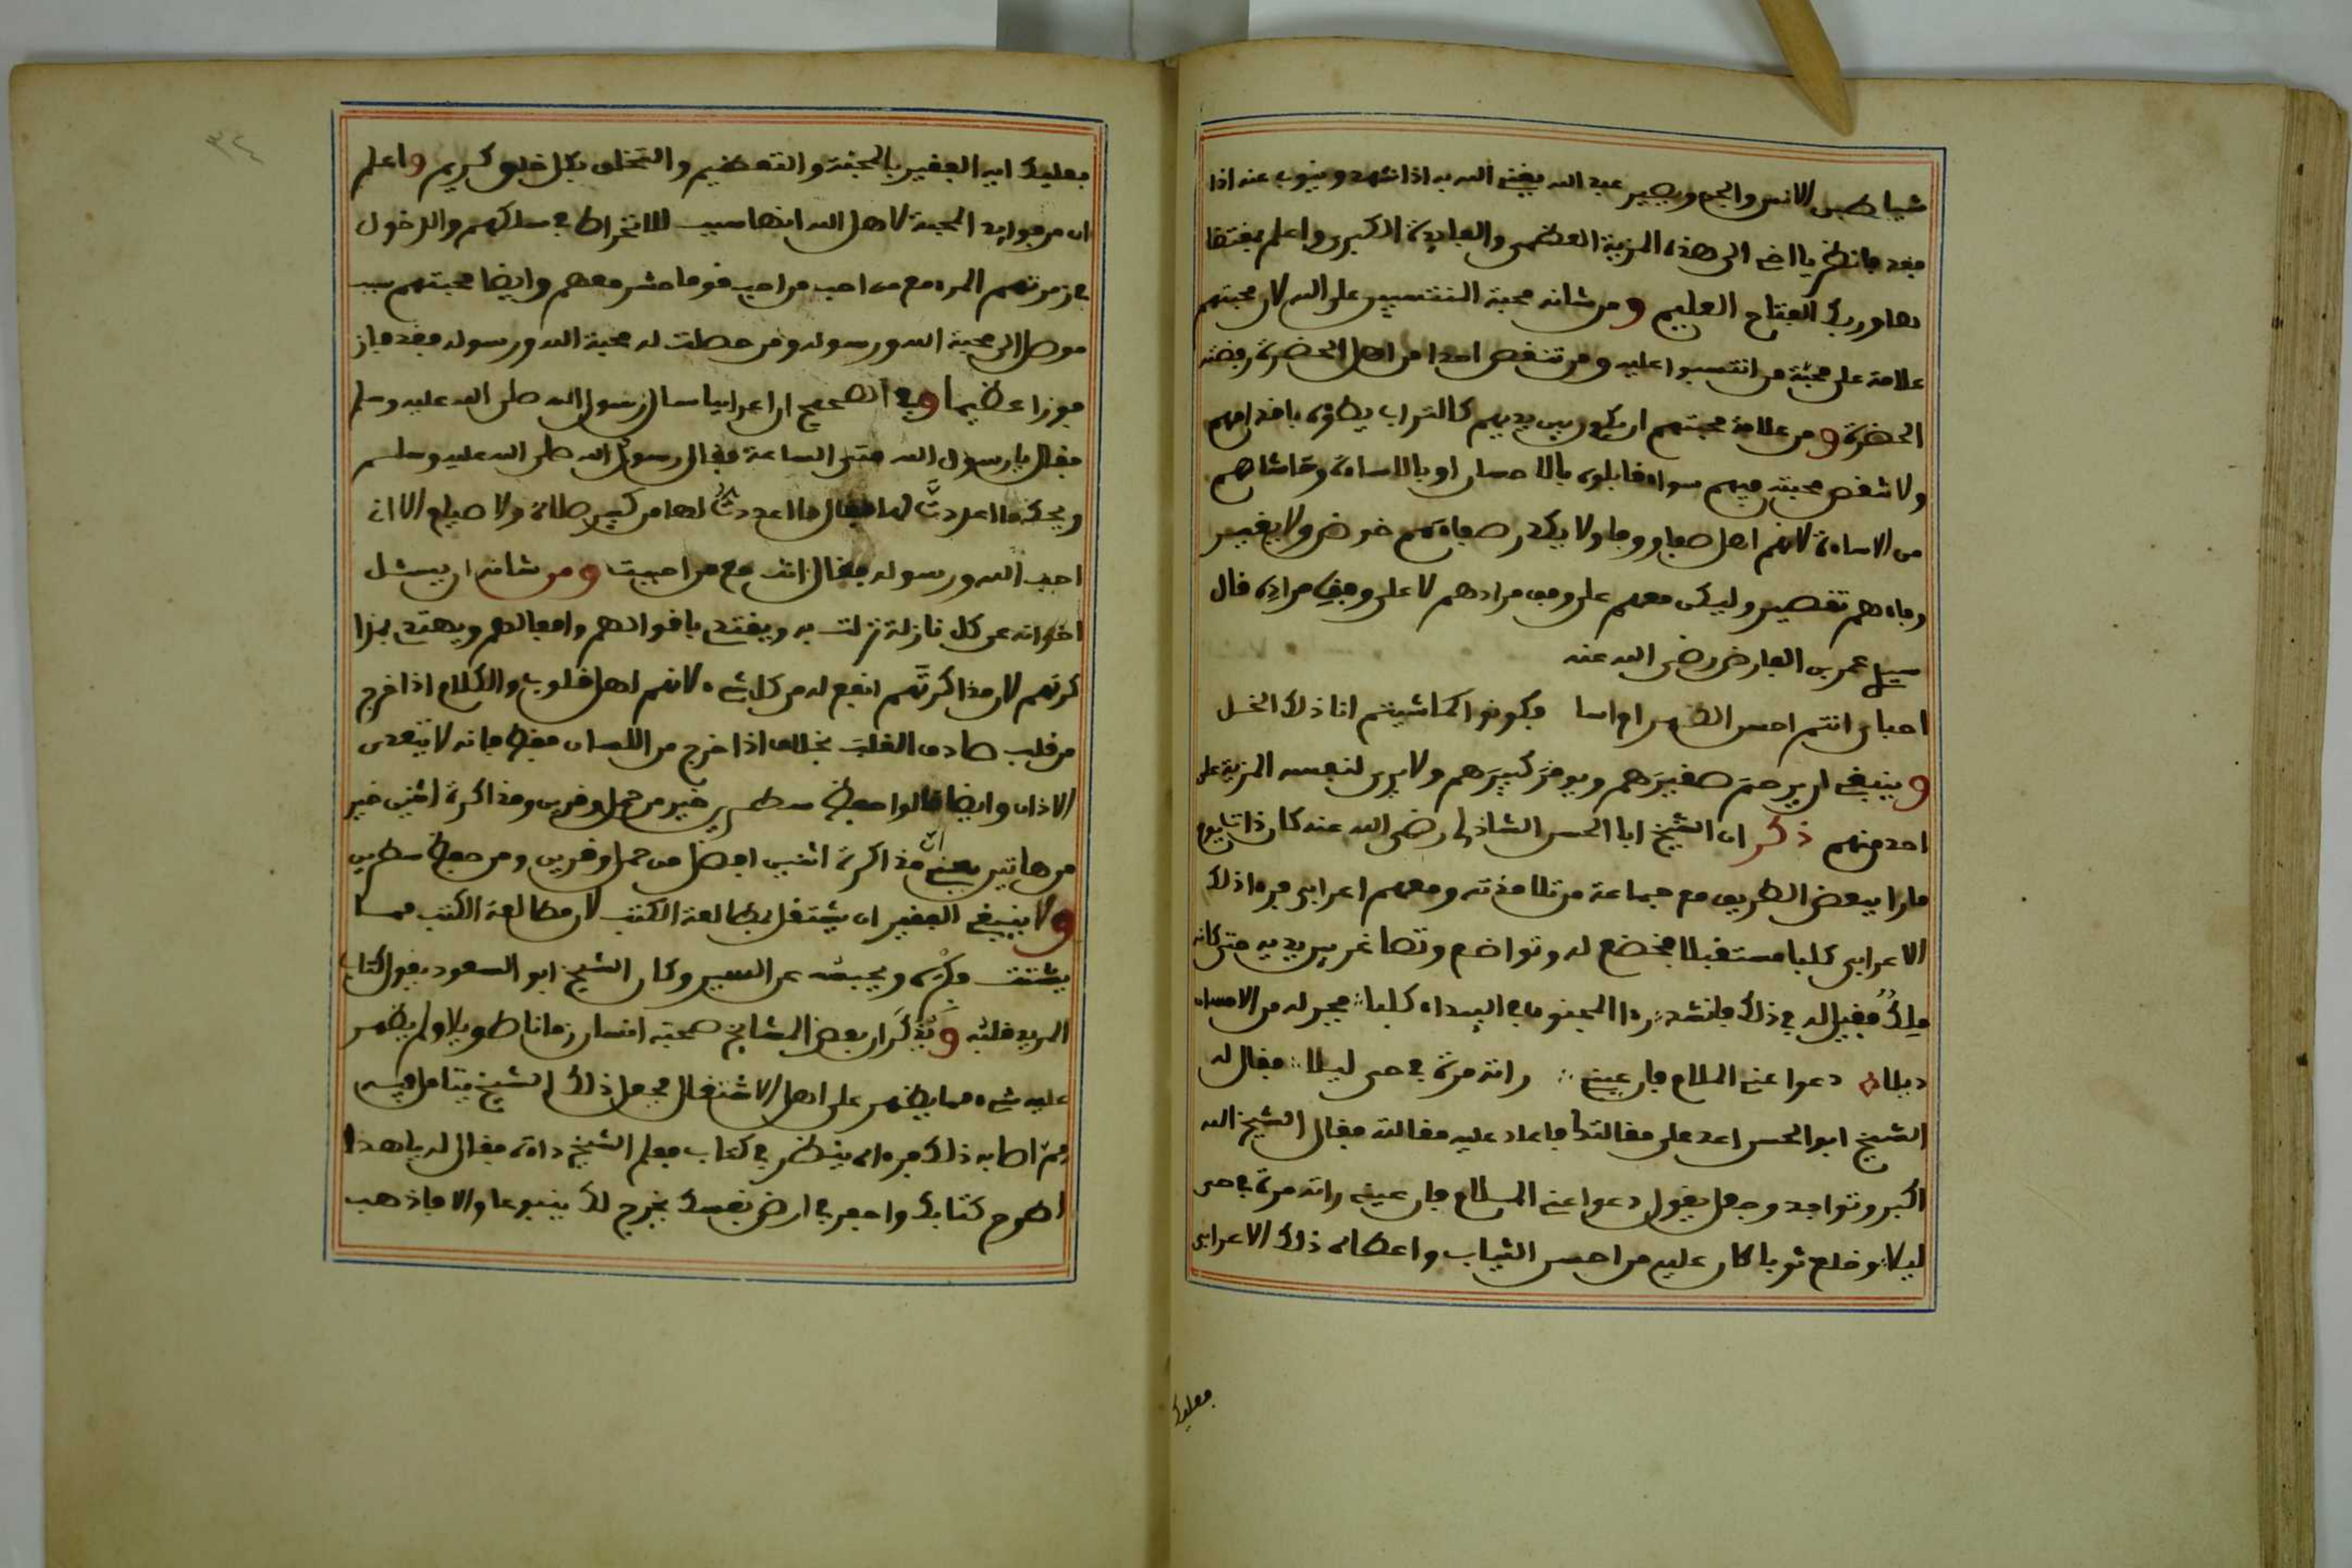 شياطين الانس والجن ويصير عبد الله يغنى الله به اذا شهد وينوب عنه اذا
فقد فانظر يا اخى الى هذه المزية العظمى والفايدة الكبرى واعلم بمقتضا
ها وربك الفتاح العليم ومن شانه محبة المنتسبين على الله لان محبتهم
علامة على محبة من انتسبوا عليه ومن تنقص احدا من اهل الحضرة رفضته
الحضرة ومن علامة محبتهم ان يكون بين يديهم كالتراب يطؤه باقدامهم
ولا تنقص محبته فيهم سواء قابلوه بالاحسان او بالاساءة وحاشاهم
من الاساءة لانهم اهل صفا ووفا ولا يكدر صفاءهم خوض ولا يغيير
وفاءهم تقصير وليكن معهم على وفق مرادهم لا على وفق مراده قال
سيدى عمر بن الفارض رضى الله عنه
احباى انتم احسن الدهر ام اسا فكونوا كما شيتم انا ذلك الخل
وينبغى ان يرحم صغيرهم ويوقر كبيرهم ولا يرى لنفسه المزية على
احد منهم ذكر ان الشيخ ابا الحسن الشاذلى رضى الله عنه كان ذات يوم
مارا ببعض الطريق مع جماعة من تلامذته ومعهم اعرابى فرءا ذلك
الاعرابى كلبا مستقبلا فخضع له وتواضع وتصاغر بين يديه حتى كانه
ملك فقيل له فى ذلك فانشد رءا المجنون فى البيداء كلبا فجر له من الاحسان
ديلا دعوا عنى الملام فان عينى راته مرة فى حى ليلا فقال له
الشيخ ابو الحسن اعد على مقالتك فاعاد عليه مقالته فقال الشيخ الله
اكبر وتواجد وجعل يقول دعوا عنى الملام فان عينى راته مرة فى حى
ليلا وخلع ثوبا كان عليه من احسن الثياب واعطاه ذلك الاعرابى
فعليك
فعليك ايه الفقير بالمحبة والتعظيم والتخلق بكل خلق كريم واعلم
ان من فوايد المحبة لاهل الله انها سبب للانخراط فى سلكهم والدخول
فى زمرتهم المرء مع من احب من احب قوما حشر معهم وايضا محبتهم سبب
موصل الى محبة الله ورسوله ومن حصلت له محبة الله ورسوله فقد فاز
فوزا عظيما وفى الصحيح ان اعرابيا سال رسول الله صلى الله عليه وسلم
فقال يا رسول الله متى الساعة فقال رسول الله صلى الله عليه وسلم
ويحك ما اعددت لها فقال ما اعددت لها من كبير صلاة ولا صيام الا انى
احب الله ورسوله فقال انت مع من احببت ومن شانه ان يسئل
اخوانه عن كل نازلة نزلت به ويقتدى باقوالهم وافعالهم ويهتدى بمذا
كرتهم لان مذاكرتهم انفع له من كل شىء لانهم اهل قلوب والكلام اذا خرج
من قلب صادف القلب بخلاف اذا خرج من اللسان فقط فانه لا يتعدى
الاذان وايضا قالوا حفظ سطرين خير من حمل وقرين ومذاكرة اثنين خير
من هاتين يعنى ان مذاكرة اثنين افضل من حمل وقرين ومن حفظ سطرين
ولا ينبغى الفقير ان يشتغل بمطالعة الكتب لان مطالعة الكتب مما
يشتت فكره ويحبسه عن السير وكان الشيخ ابو السعود يقول كتاب
المريد قلبه ويذكر ان بعض المشايخ صحبه انسان زمانا طويلا ولم يظهر
عليه شىء مما يظهر على اهل الاشتغال فجعل ذلك الشيخ يتامل فيه
مم اصابه ذلك فرءاه ينظر فى كتاب فعلم الشيخ داءه فقال له يا هذا
اطرح كتابك واحفر فى ارض نفسك يخرج لك ينبوعا والا فاذهب